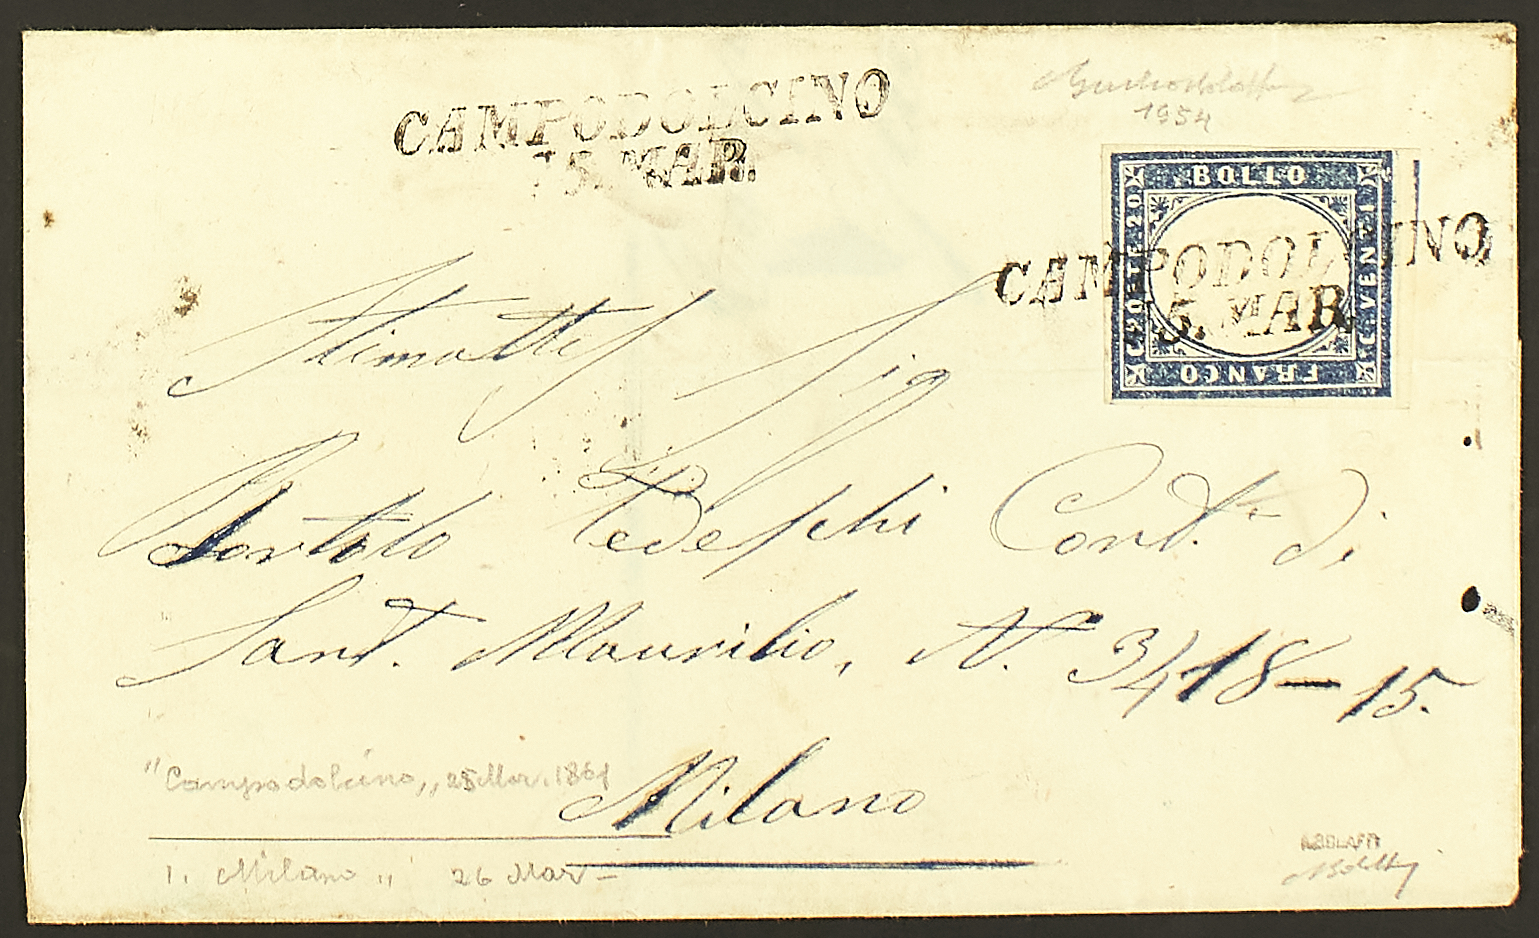 CAMPODOLCINO
15. MAR.
1954
BOLLO
C. 20 - TE. 20
C. VENTI
FRANCO
CAMPODOLCINO
15. MAR.
Stimattss Sig
Bortolo Tedeschi Cont. di
Sant. Maurilio, N. 3418-15.
"Campodolcino,, 25 Mar. 1861
Milano
1. Milano „ 26 Mar -
ABOLAFFI